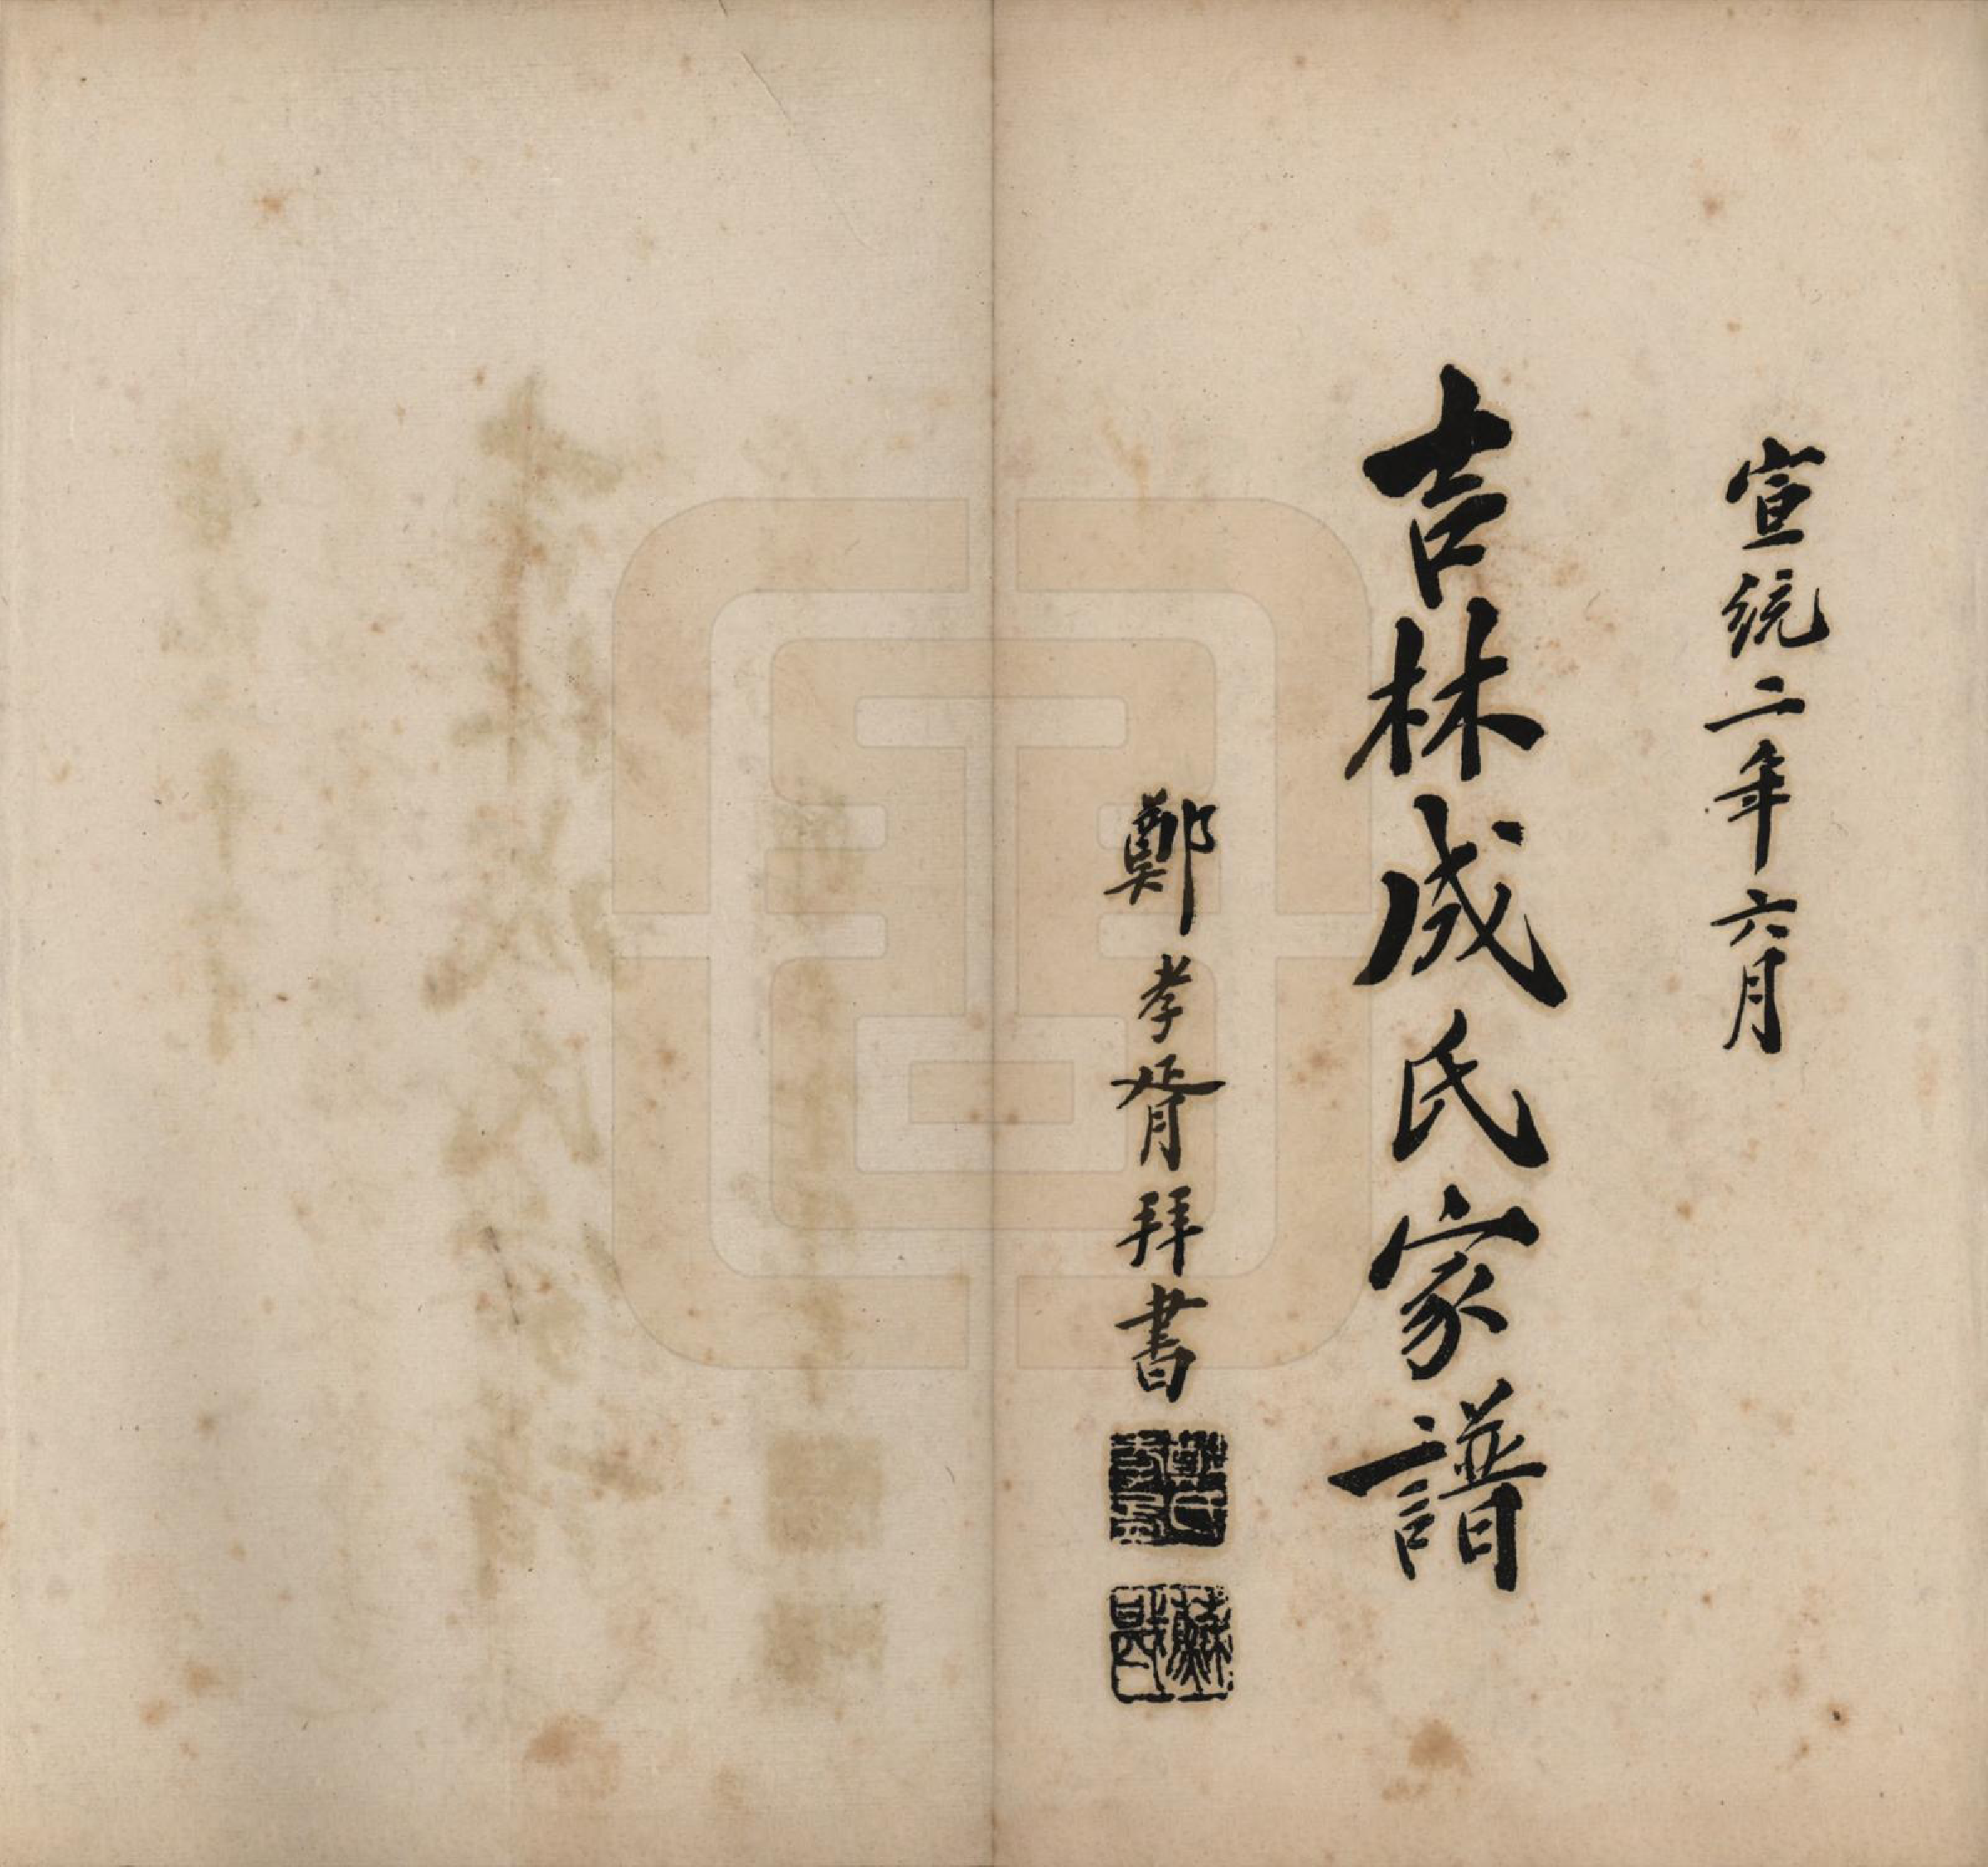 宣統二年六月
吉林成氏家譜
鄭孝胥拜書
蘇戡